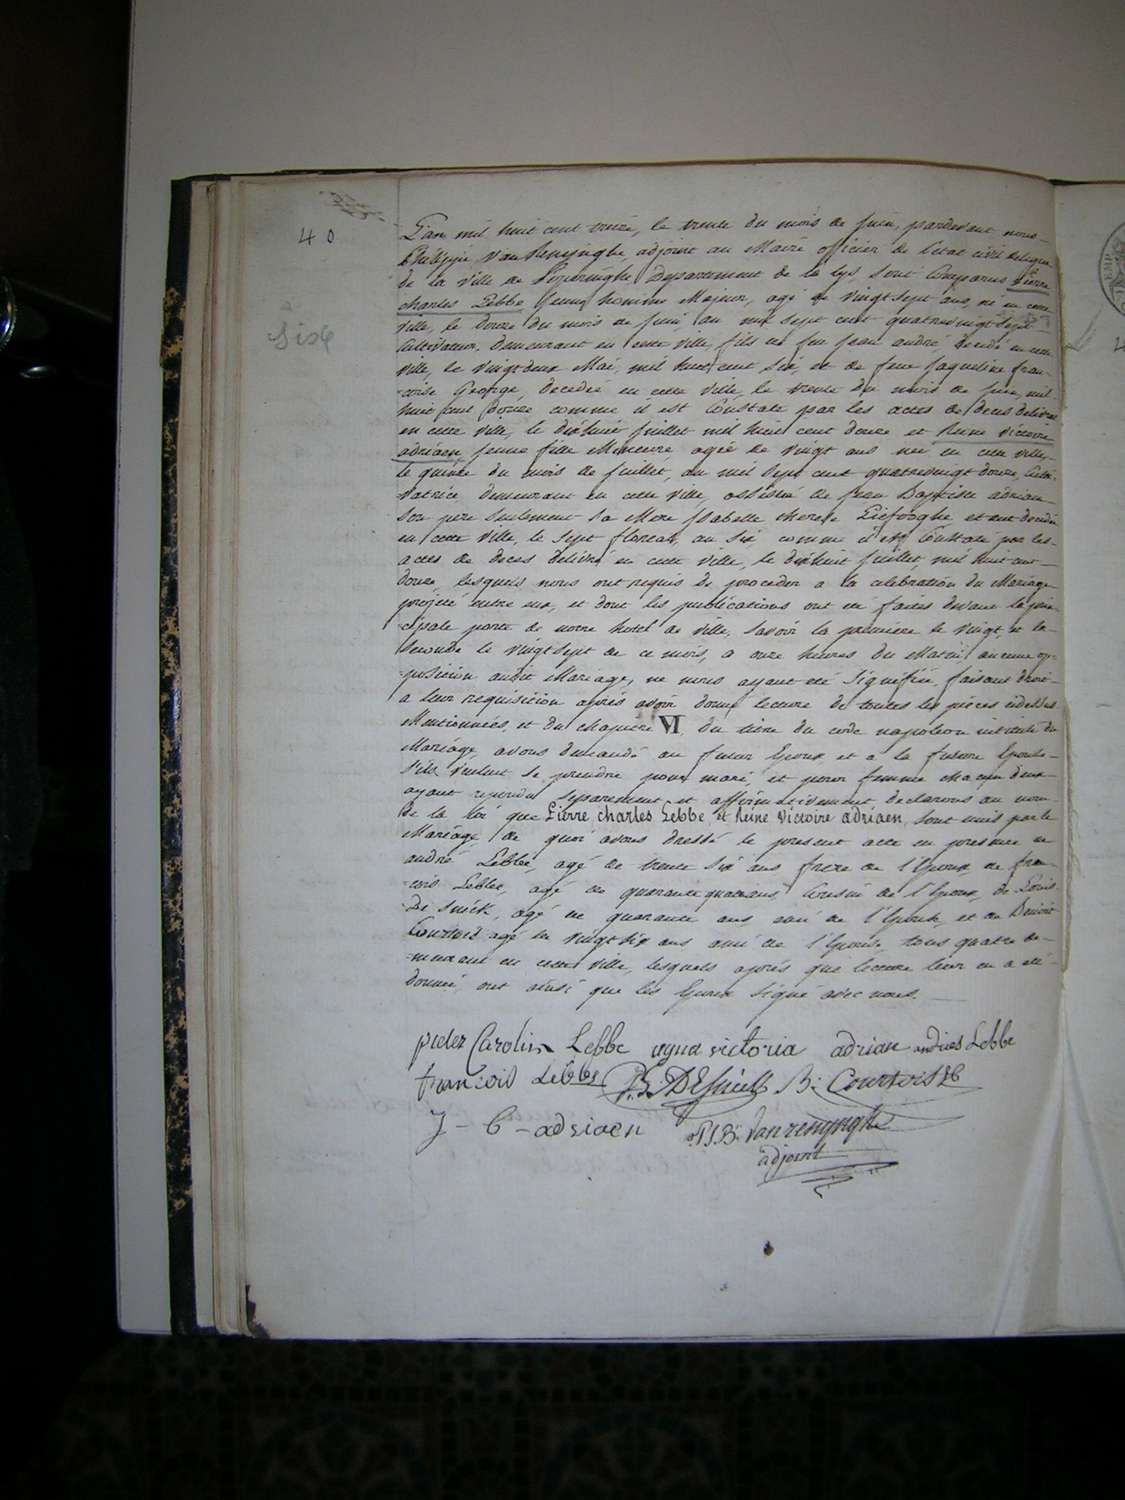 40
Sixte
L'an mil huit cent treize, le trente du mois de Juin, pardevant nous
Philippe Vanrenynghe, adjoint au Maire officier de l'etat civil
de la ville de Departement de la Lys, sont Comparus Pierre
charles Lebbe jeune homme Majeur, agé de vingt sept ans, né en cette
ville, le douze du mois de Juin, au mil sept cent quatrevingt sept
Cultivateur, demeurant en cette ville, fils de feu jean andré, decedé en cette
ville, le vingt deux Mai, mil huit cent six, et de feue jaqueline fran-
-coise George, decedée en cette ville, le trente du mois de juin, mil
huit cent douze comme il est Constaté par les actes de deces delivrés
en cette ville, le dixhuit juillet mil huit cent douze et Reine victoire
adriaen, jeune fille Mineure, agée de vingt ans née en cette ville
le quinze du mois de juillet, au mil sept cent quatrevingt douze, Culti-
-vatrice demeurant en cette ville, assistée de jean Baptiste adriaen
son pere seulement sa Mere Isabelle therese Liefooghe etant decedée
en cette ville, le sept floreal, an six, comme il est Constaté par les
actes de deces delivré en cette ville, le dixhuit juillet, mil huit cent
douze, lesquels nous ont requis de proceder a la celebration du Mariage
projété entre eux, et dont les publications ont été faites devant la prin-
-cipale porte de notre hotel de ville, savoir la premiere le vingt, et la
seconde le vingt sept de ce mois, a onze heures du Matin, aucune op-
-position audit Mariage, ne nous ayant été signifiée, faisant droit
a leur requisition après avoir donné lecture de toutes les pièces cidessus
Mentionnées, et du chapitre VI, du titre du code napoleon intitulé du
Mariage avons demandé au futur Epoux et a la future Epouse
s'ils veulent se prendre pour mari, et pour femme chacun deux
ayant repondu separement et affirmativement, declarons au nom
de la loi que Pierre charles Lebbe et Reine Victoire adriaen, sont unis par le
Mariage de quoi avons dressé le present acte en presence de
andré Lebbe, agé de trente six ans frere de l'Epoux, de fran-
-cois Lebbe, agé de quarante quatre ans Cousin de l'Epoux, de Louis
De snick, agé de quarante ans, ami de l'Epouse, et de Benoit
Courtois agé de vingt six ans ami de l'Epouse, tous quatre de-
-meurant en cette ville, lesquels après que lecture leur en a été
donnée, ont ainsi que les Epoux signé avec nous.
pieter Carolus Lebbe regina victoria adriaen andries Lebbe
francois Lebbe B: Courtois
J - B - adriaen Vanrenynghe
adjoint